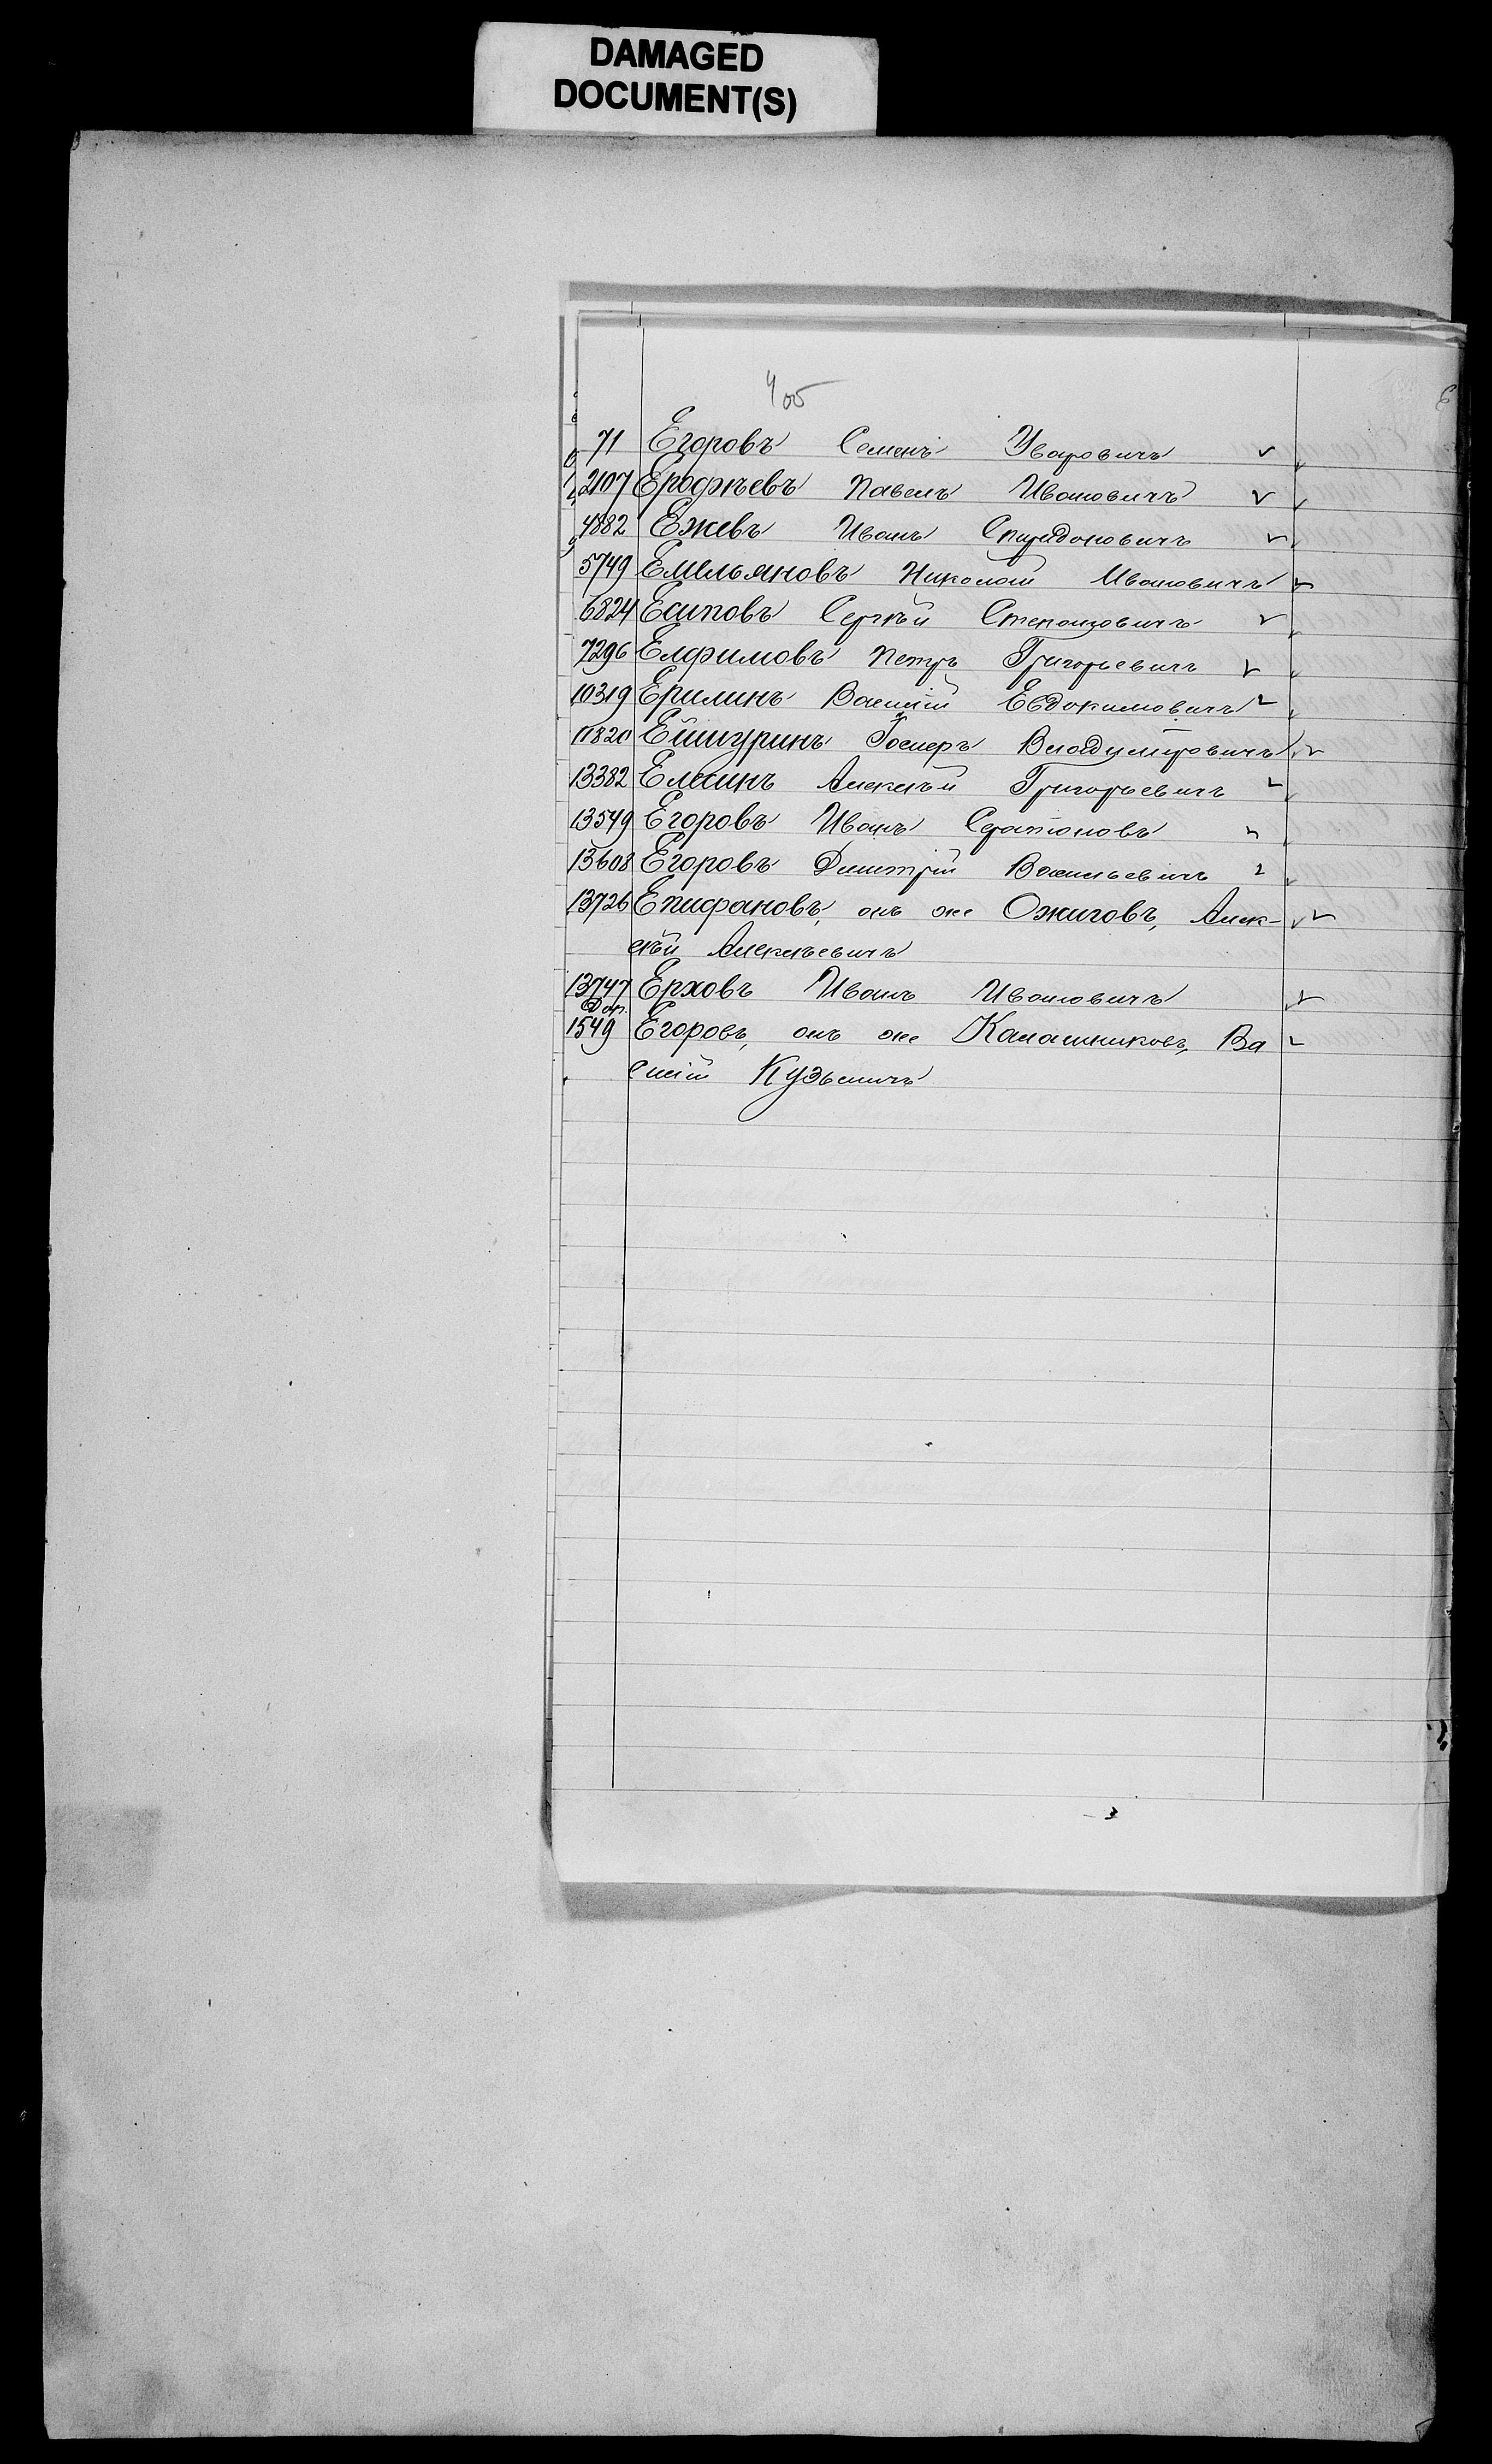 DAMAGED
DOCUMENT(S)
4 об
71 Егоровъ Семенъ Уваровичъ
2107 Ерофѣевъ Павелъ Ивановичъ
4882 Ежевъ Иванъ Спиридоновичъ
5749 Емельяновъ Николай Ивановичъ
6824 Есиповъ Сергѣй Степановичъ
7296 Елфимовъ Петръ Григорьевичъ
10319 Ерилинъ Василій Евдокимовичъ
11820 Ейшуринъ Госперъ Владиміровичъ
13382 Елшинъ Алексѣй Григорьевичъ
13549 Егоровъ Иванъ
13608 Егоровъ Димитрій Васильевичъ
13726 Епифановъ, онъ же Ожиговъ, Алек-
сѣй Алексѣевичъ
13747 Ерховъ Иванъ Ивановичъ
Доп.
1549 Егоровъ, онъ же Калашниковъ, Ва
силій Кузьмичъ